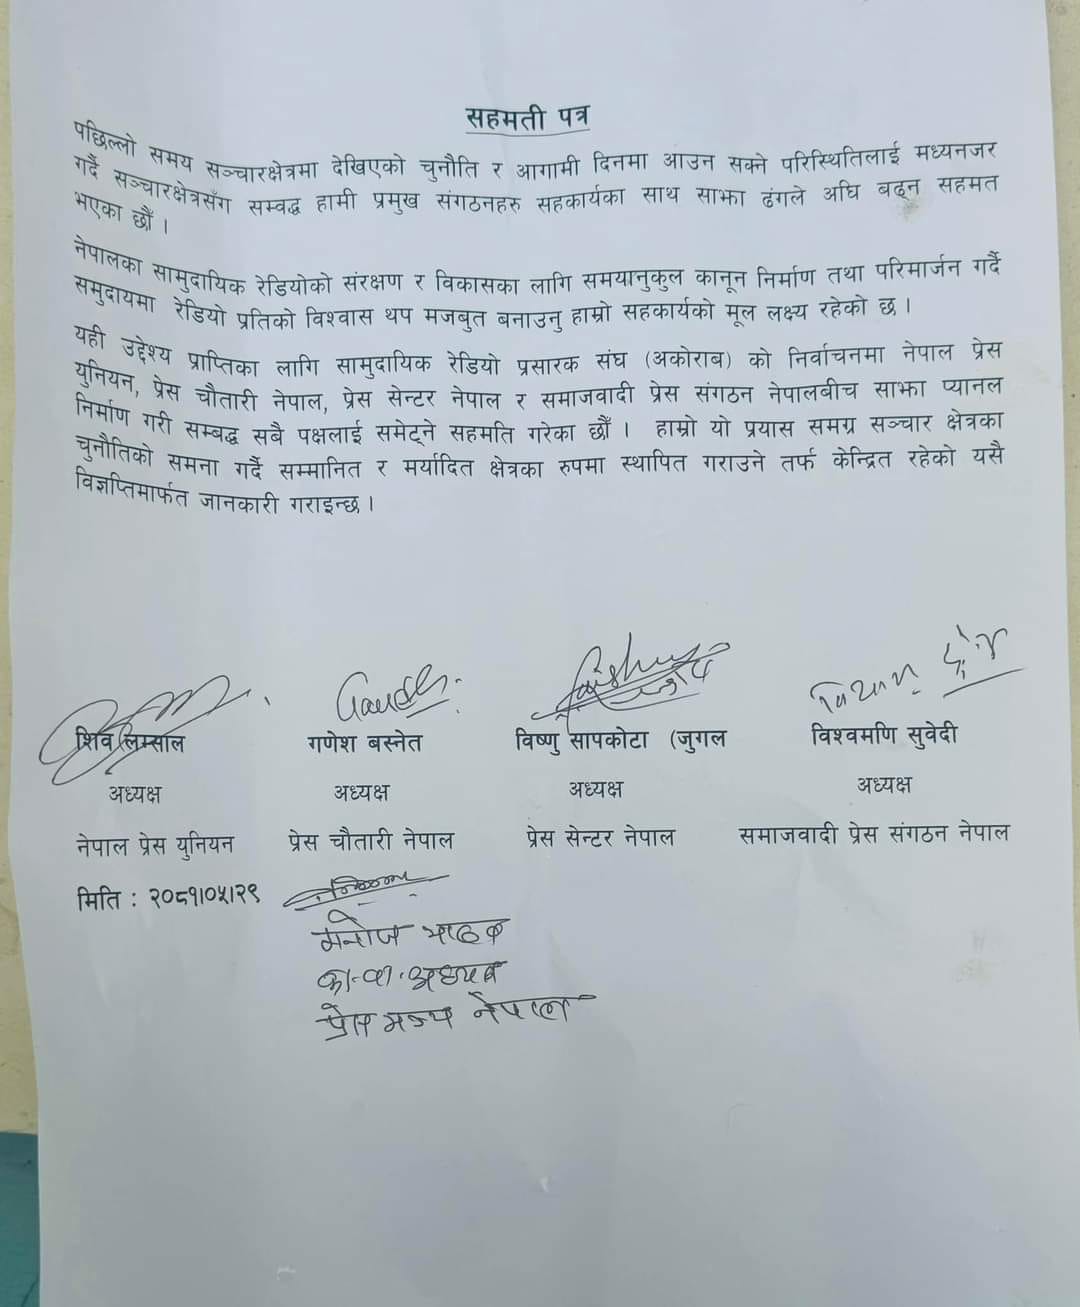 सहमती पत्र
पछिल्लो समय सञ्चारक्षेत्रमा देखिएको चुनौति र आगामी दिनमा आउन सक्ने परिस्थितिलाई मध्यनजर
गर्दै सञ्चारक्षेत्रसँग सम्वद्ध हामी प्रमुख संगठनहरु सहकार्यका साथ साझा ढंगले अघि बढ्न सहमत
भएका छौं ।
नेपालका सामुदायिक रेडियोको संरक्षण र विकासका लागि समयानुकुल कानून निर्माण तथा परिमार्जन गर्दै
समुदायमा रेडियो प्रतिको विश्वास थप मजबुत बनाउनु हाम्रो सहकार्यको मूल लक्ष्य रहेको छ ।
यही उद्देश्य प्राप्तिका लागि सामुदायिक रेडियो प्रसारक संघ (अकोराब) को निर्वाचनमा नेपाल प्रेस
युनियन, प्रेस चौतारी नेपाल, प्रेस सेन्टर नेपाल र समाजवादी प्रेस संगठन नेपालबीच साझा प्यानल
निर्माण गरी सम्बद्ध सबै पक्षलाई समेट्ने सहमति गरेका छौं । हाम्रो यो प्रयास समग्र सञ्चार क्षेत्रका
चुनौतिको समना गर्दै सम्मानित र मर्यादित क्षेत्रका रुपमा स्थापित गराउने तर्फ केन्द्रित रहेको यसै
विज्ञप्तिमार्फत जानकारी गराइन्छ ।
शिव लम्साल गणेश बस्नेत विष्णु सापकोटा (जुगल विश्वमणि सुवेदी
अध्यक्ष अध्यक्ष अध्यक्ष अध्यक्ष
नेपाल प्रेस युनियन प्रेस चौतारी नेपाल प्रेस सेन्टर नेपाल समाजवादी प्रेस संगठन नेपाल
मिति : २०८१।०५।२९
मनोज पाठक
का.वा. अध्यक्ष
प्रेस मञ्च नेपाल